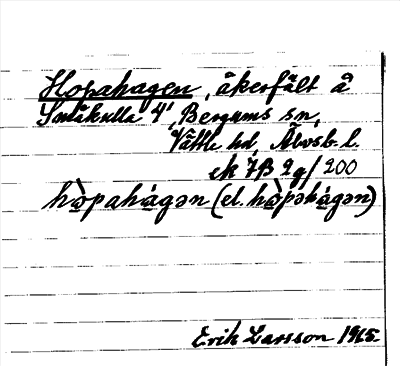 Hopahagen, åkerfält å
Småkulla 4¹, Bergums sn,
Vättle hd, Älvsb. l.
ek 7B 2g/200
hòpahágən (el. hòpəhágən)
Erik Larsson 1965.